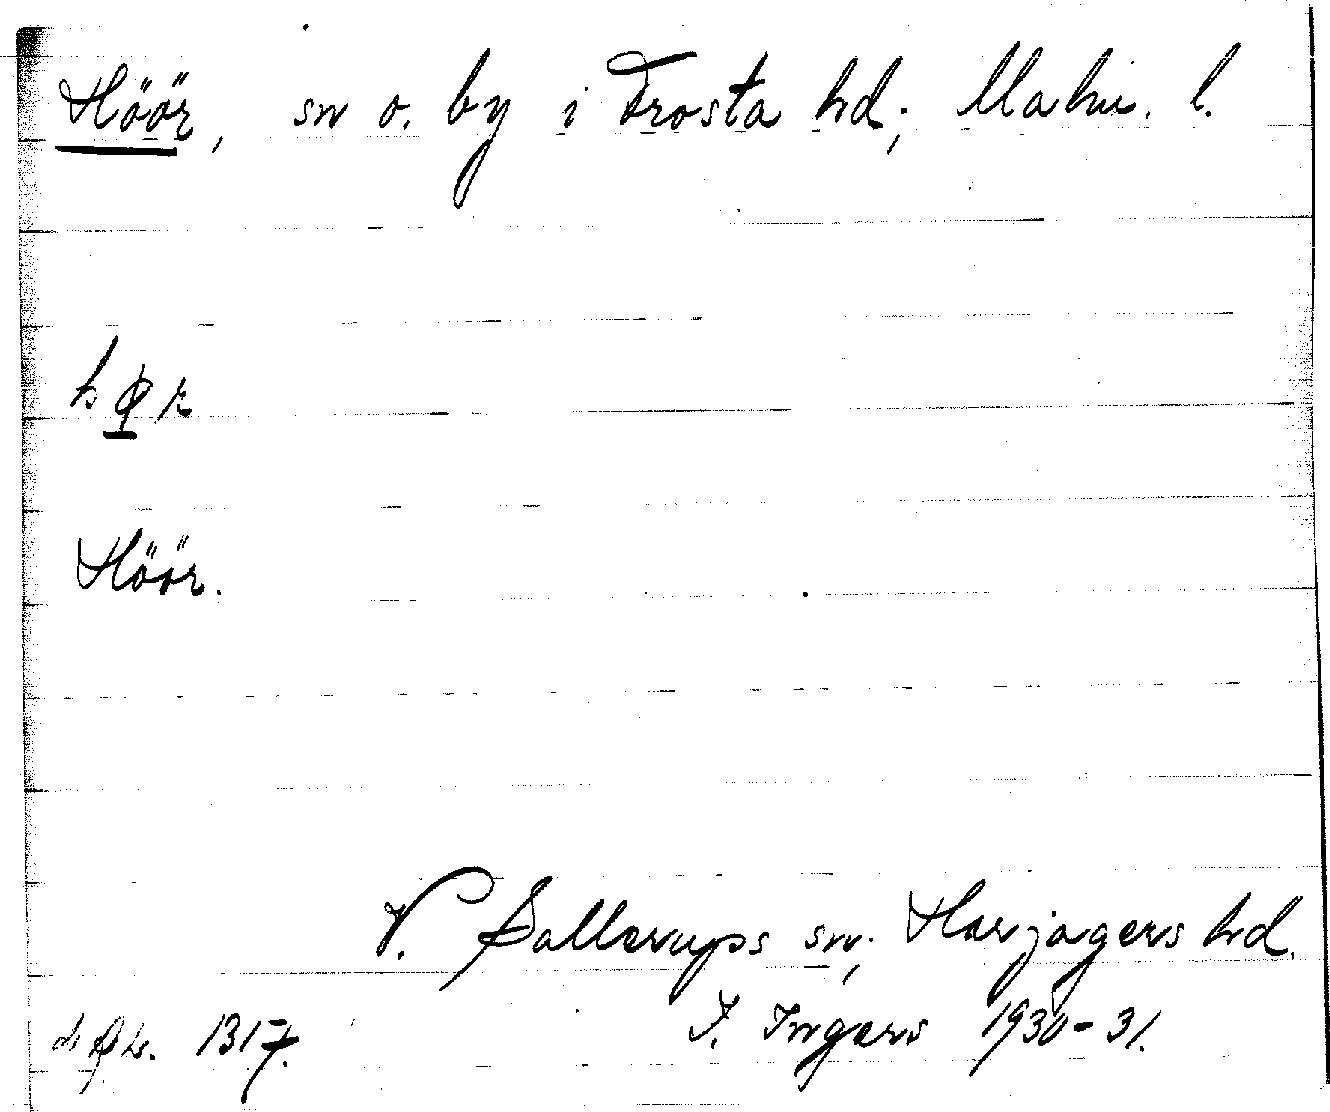 Höör, sn o. by i Frosta hd; Malm. l.
hør
Höör.
V. Sallerups sn; Harjagers hd.
I. Ingers 1930-31.
1317.